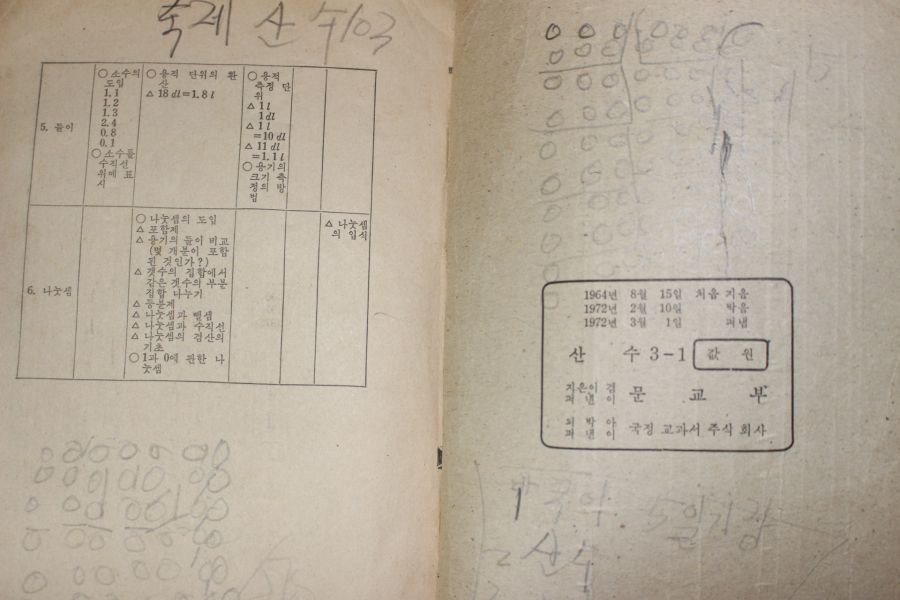 숙제 산수103
5. 들이
○ 소수의
도입
1.1
1.2
1.3
2.4
0.8
0.1
○ 소수를
수직선
위에 표
시
○ 용적 단위의 환
산
△ 18 dl=1.8 l
○ 용적
측정 단
위
△ 1 l
1 dl
△ 1 l
=10 dl
△ 11 dl
=1.1 l
○ 용기의
크기 측
정의 방
법
6. 나눗셈
○ 나눗셈의 도입
△ 포함제
△ 용기의 들이 비교
(몇 개분이 포함
된 것인가?)
△ 갯수의 집합에서
같은 갯수의 부분
집합 나누기
△ 등분제
△ 나눗셈과 뺄셈
△ 나눗셈과 수직선
△ 나눗셈의 검산의
기초
○ 1과 0에 관한 나
눗셈
△ 나눗셈
의 입식
1964년 8월 15일 처음 지음
1972년 2월 10일 박음
1972년 3월 1일 펴냄
산 수 3-1 값 원
지은이 겸
펴낸이 문 교 부
박아
펴낸이 국정 교과서 주식 회사
2 산수
5 일기장